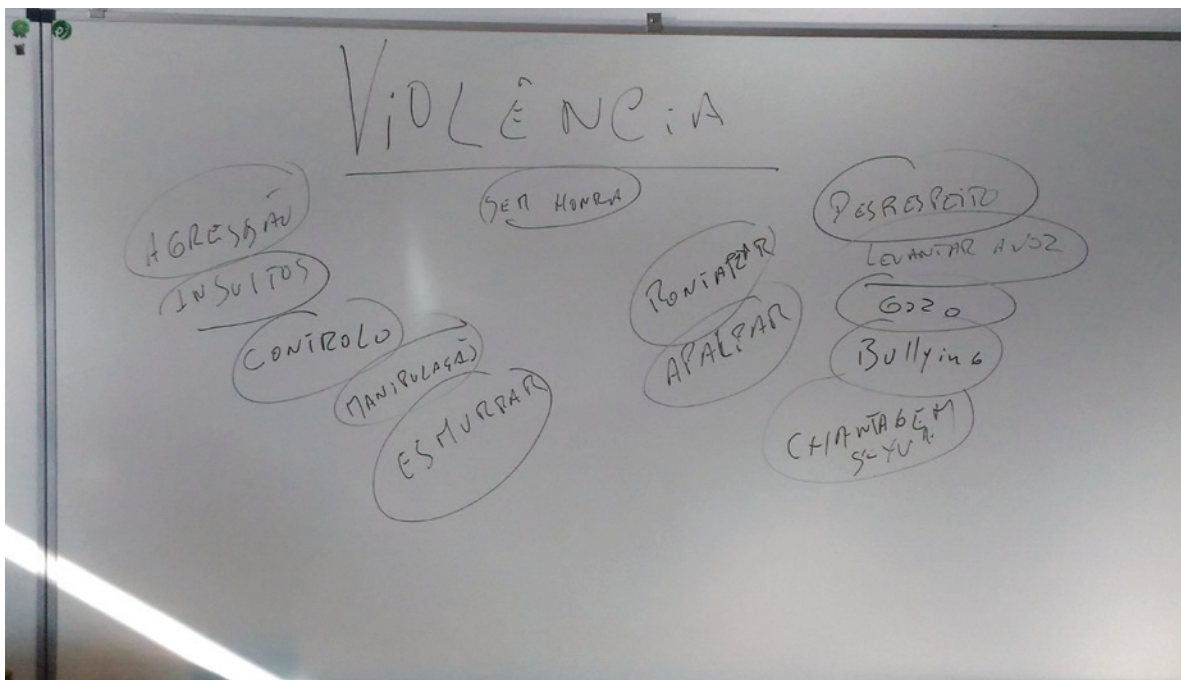 VIOLÊNCIA
SEM HONRA
AGRESSÃO
INSULTOS
CONTROLO
MANIPULAÇÃO
ESMURRAR
PONTAPEAR
APALPAR
DESRESPEITO
LEVANTAR A VOZ
GOZO
Bullying
CHANTAGEM
SEXUAL